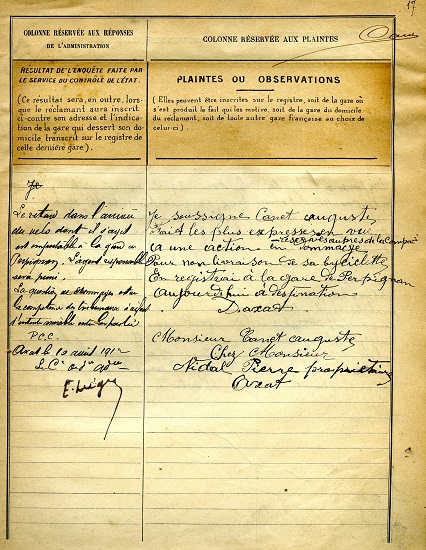 17
COLONNE RÉSERVÉE AUX RÉPONSES
DE L'ADMINISTRATION
RÉSULTAT DE L'ENQUÊTE FAITE PAR
LE SERVICE DU CONTRÔLE DE L'ÉTAT.
(Ce résultat sera, en outre, lors-
que le réclamant aura inscrit
ci-contre son adresse et l'indica-
tion de la gare qui dessert son do-
micile transcrit sur le registre de
cette dernière gare).
Je
Le retard dans l'arrivée
du vélo dont il s'agit
est imputable à la gare de
Perpignan. L'agent responsable
sera puni.
La question de dommages est de
la compétence des tribunaux à défaut
d'entente amiable entre les parties
P.C.C.
Axat le 10 août 1912
COLONNE RÉSERVÉE AUX PLAINTES
PLAINTES OU OBSERVATIONS
(Elles peuvent être inscrites sur le registre, soit de la gare où
s'est produit le fait qui les motive, soit de la gare du domicile
du réclamant, soit de toute autre gare française au choix de
celui-ci).
Je soussigné Canet auguste
Fait les plus expresses en vu
réserves auprès de la Compac
a une action en dommage
Pour non livraison de sa byciclette
En registrai à la gare de Perpignan
aujourdshui à destination
Daxat.
Monsieur Canet auguste
Chez Monsieur
Nidal Pierre propriétaire
Axat